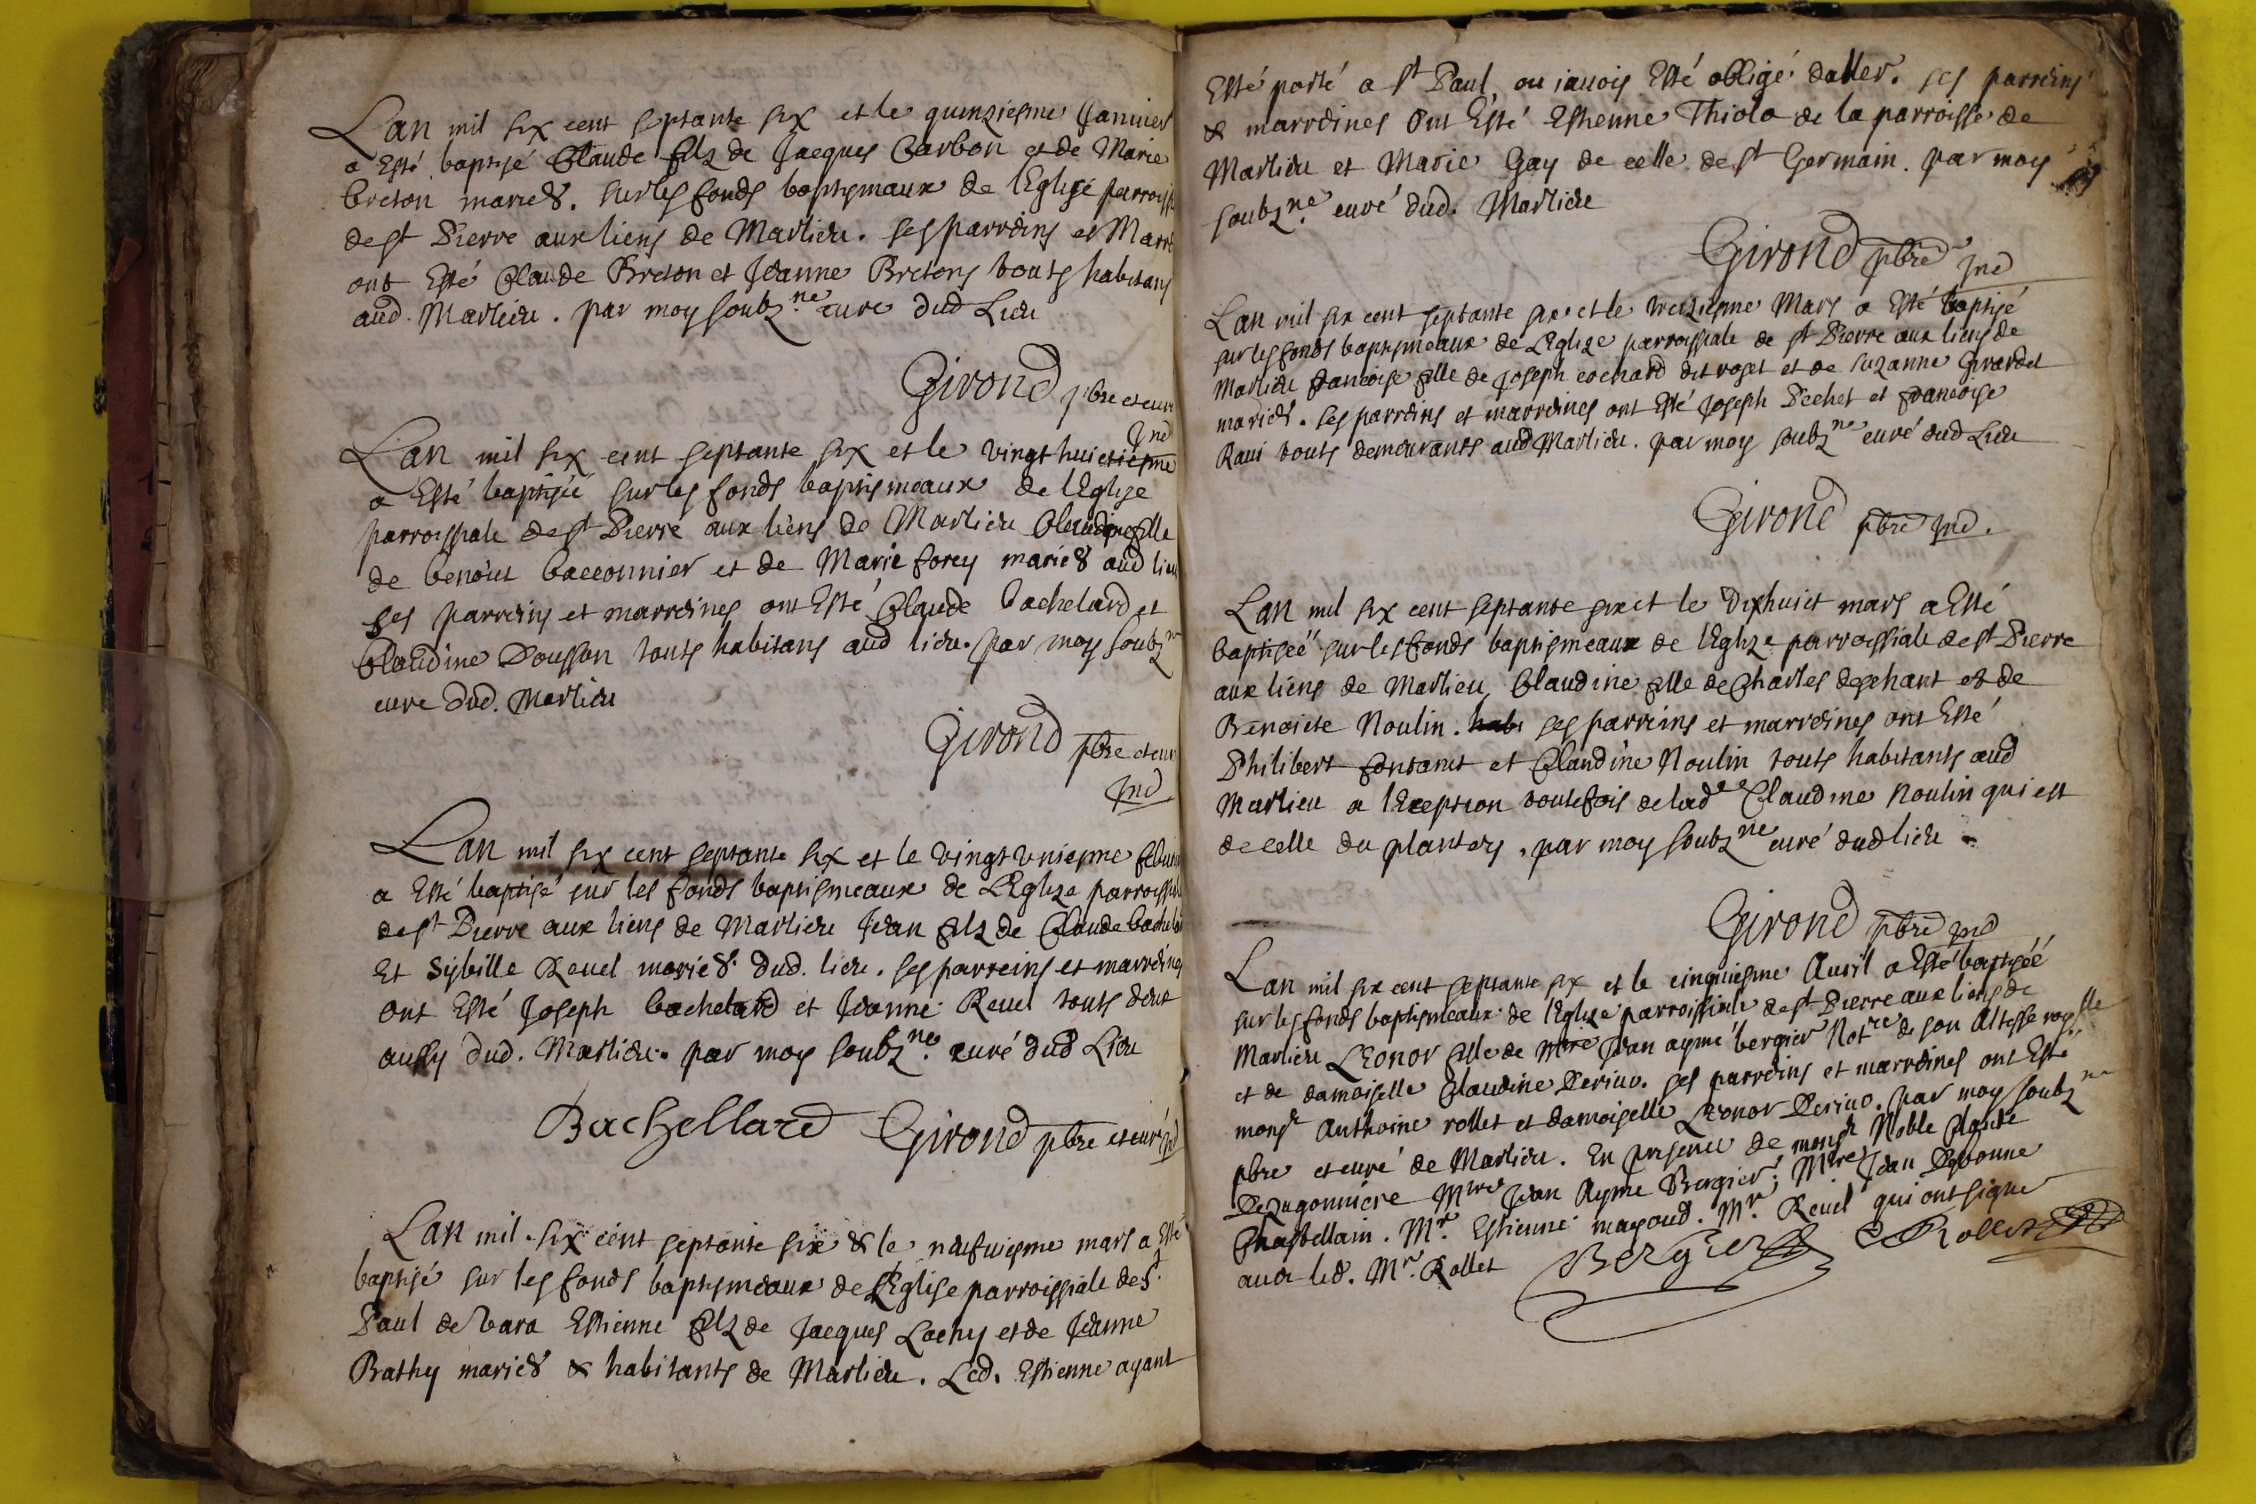 Lan mil six cent septante six et le quinziesme Janvier
a Esté baptisé Claude filz de Jacques Carbon et de Marie
breton mariés. sur les fonds baptismaux de lEglise parroiss
de st Pierre aux liens de Marlieu. ses parreins et Marre
ont Esté Claude Breton et Jeanne Bretons touts habitans
aud. Marlieu. par moy soubzne. curé dud Lieu
Girond pbre et curé
Ind
Lan mil six cent septante six et le vingt huictiesme
a Esté baptisée sur les fonds baptismeaux de lEglise
parroissiale de st Pierre aux liens de Marlieu Claudine fille
de benoict bacconnier et de Marie forey mariés aud lieu
ses parreins et marreines ont Esté Claude bachelard et
Claudine Dousson touts habitans aud lieu. par moy soubzne
curé dud. Marlieu
Girond pbre et cur
Ind
Lan mil six cent septante six et le vingt uniesme febur
a Esté baptisé sur les fonds baptismeaux de LEglize parroissial
de st Pierre aux liens de Marlieu Jean filz de Claude bachela
Et Sybille Revel mariés. dud. lieu. ses parreins et marreines
ont Esté Joseph bachelard et Jeanne Revel touts deux
aussy dud. Marlieu. par moy soubzne. curé dud Lieu
Bachellard Girond pbre et curé Ind
Lan mil. six cent septante six & le neufviesme mars a Esté
baptisé sur les fonds baptismeaux de lEglise parroissiale de st
Paul de Vara Estienne filz de Jacques Lachy et de Jeanne
Bathy mariés & habitants de Marlieu. Led. Estienne ayant
Esté porté a st Paul, ou iavois Esté obligé daller. ses parreins
& marreines ont Esté Estienne Thiola de la parroisse de
Marlieu et Marie Gay de celle de st Germain. par moy
soubzne. curé dud. Marlieu
Girond pbre Ind
Lan mil six cent septante six et le treiziesme Mars a Esté baptisé
sur les fonds baptismeaux de LEglize parroissiale de st Pierre aux liens de
Marlieu francoise fille de Joseph cochard dit roset et de suzanne Girardet
mariés. ses parreins et marreines ont Esté Joseph Pechet et francoise
Ravi touts demeurants aud Marlieu. par moy soubzne curé dud Lieu
Girond pbre Ind.
Lan mil six cent septante six et le dixhuict mars a Esté
baptiséé sur les fonds baptismeaux de lEglize parroissiale de st Pierre
aux liens de Marlieu, Claudine fille de Charles dephant et de
Benoicte Noulin. habi ses parreins et marreines ont Esté
Philibert fontanet et Claudine Noulin touts habitants aud
Marlieu a lExeption toutefois de lade Claudine Noulin qui est
de celle du plantey, par moy soubzne curé dud lieu
Girond pbre Ind
Lan mil six cent septante six et le cinquiesme Auril a Esté baptiséé
sur les fonds baptismeaux de lEglize parroissiale de st Pierre aux liens de
Marlieu Leonor fille de Mre Jean aymé bergier Notre de son Altesse royalle
et de damoiselle Claudine Periuo. ses parreins et marreines ont Esté
monsr Anthoine rollet et damoiselle Leonor Periuo. par moy soubzne
pbre et curé de Marlieu. En presence de monsr Noble Claude
Dezugonniere Mre Jean Ayme Bergier, Mre Jean Debonne
Chastellain. Mr. Estienne mayoud. Mr. Revel qui ont signe
auec led. Mr. Rollet Bergier C Rollet